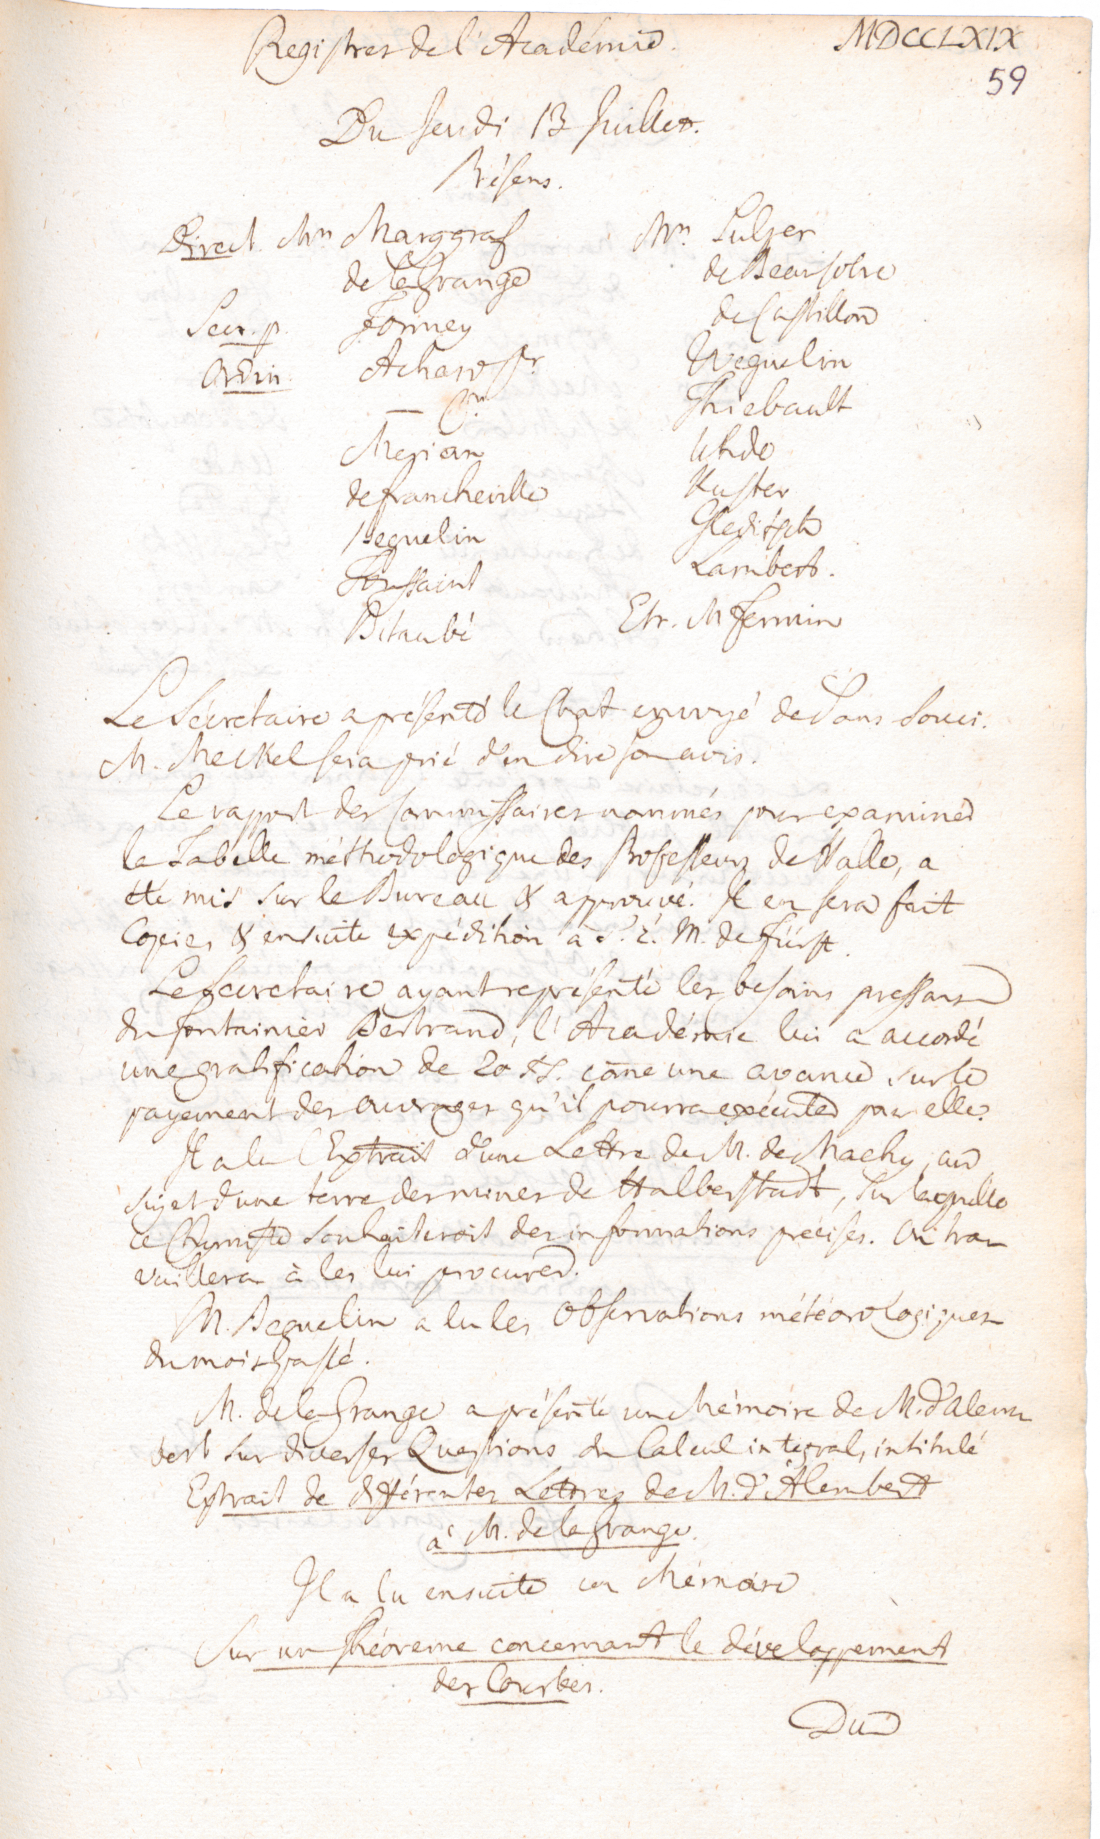 Registres de l'Académie.
MDCCLXIX
59
Du Jeudi 13 Juillet.
Présens.
Direct. Mrs Marggraf
de la Grange
Secr. p. Formey
Ordin. Achard Sr.
— Jr.
Merian
de Francheville
Beguelin
Toussaint
Bitaubé
Mrs Sulzer
de Beausobre
de Castillon
Weguelin
Thiebault
Uhde
Kuster
Gleditsch
Lambert.
Etr. M Fermin
Le Sécretaire a présenté le Chat envoyé de Sans Souci.
M. Meckel sera prié d'en dire son avis.
Le rapport des Commissaires nommés pour examiner
la Tabelle méthodologique des Professeurs de Halle, a
été mis sur le Bureau & approuvé. Il en sera fait
Copies & ensuite expédition à S. E. M. de Fürst.
Le Sécretaire ayant représenté les besoins pressans
du fontainier Bertrand, l'Académie lui a accordé
une gratification de 20 comme une avance sur le
payement des ouvrages qu'il pourra exécuter pour elle.
Il a lu l'Extrait d'une Lettre de M. de Machy, au
sujet d'une terre des mines de Halberstadt, sur laquelle
ce Chymiste souhaiteroit des informations précises. On tra
vaillera à les lui procurer.
M. Beguelin a lu les Observations météorologiques
du mois passé.
M. de la Grange a présenté un Mémoire de M. d'Alem
bert sur diverses Questions du Calcul intégral, intitulé
Extrait de différentes Lettres de M. d'Alembert
à M. de la Grange.
Il a lu ensuite un Mémoire
Sur un Théoreme concernant le développement
des Courbes.
Du